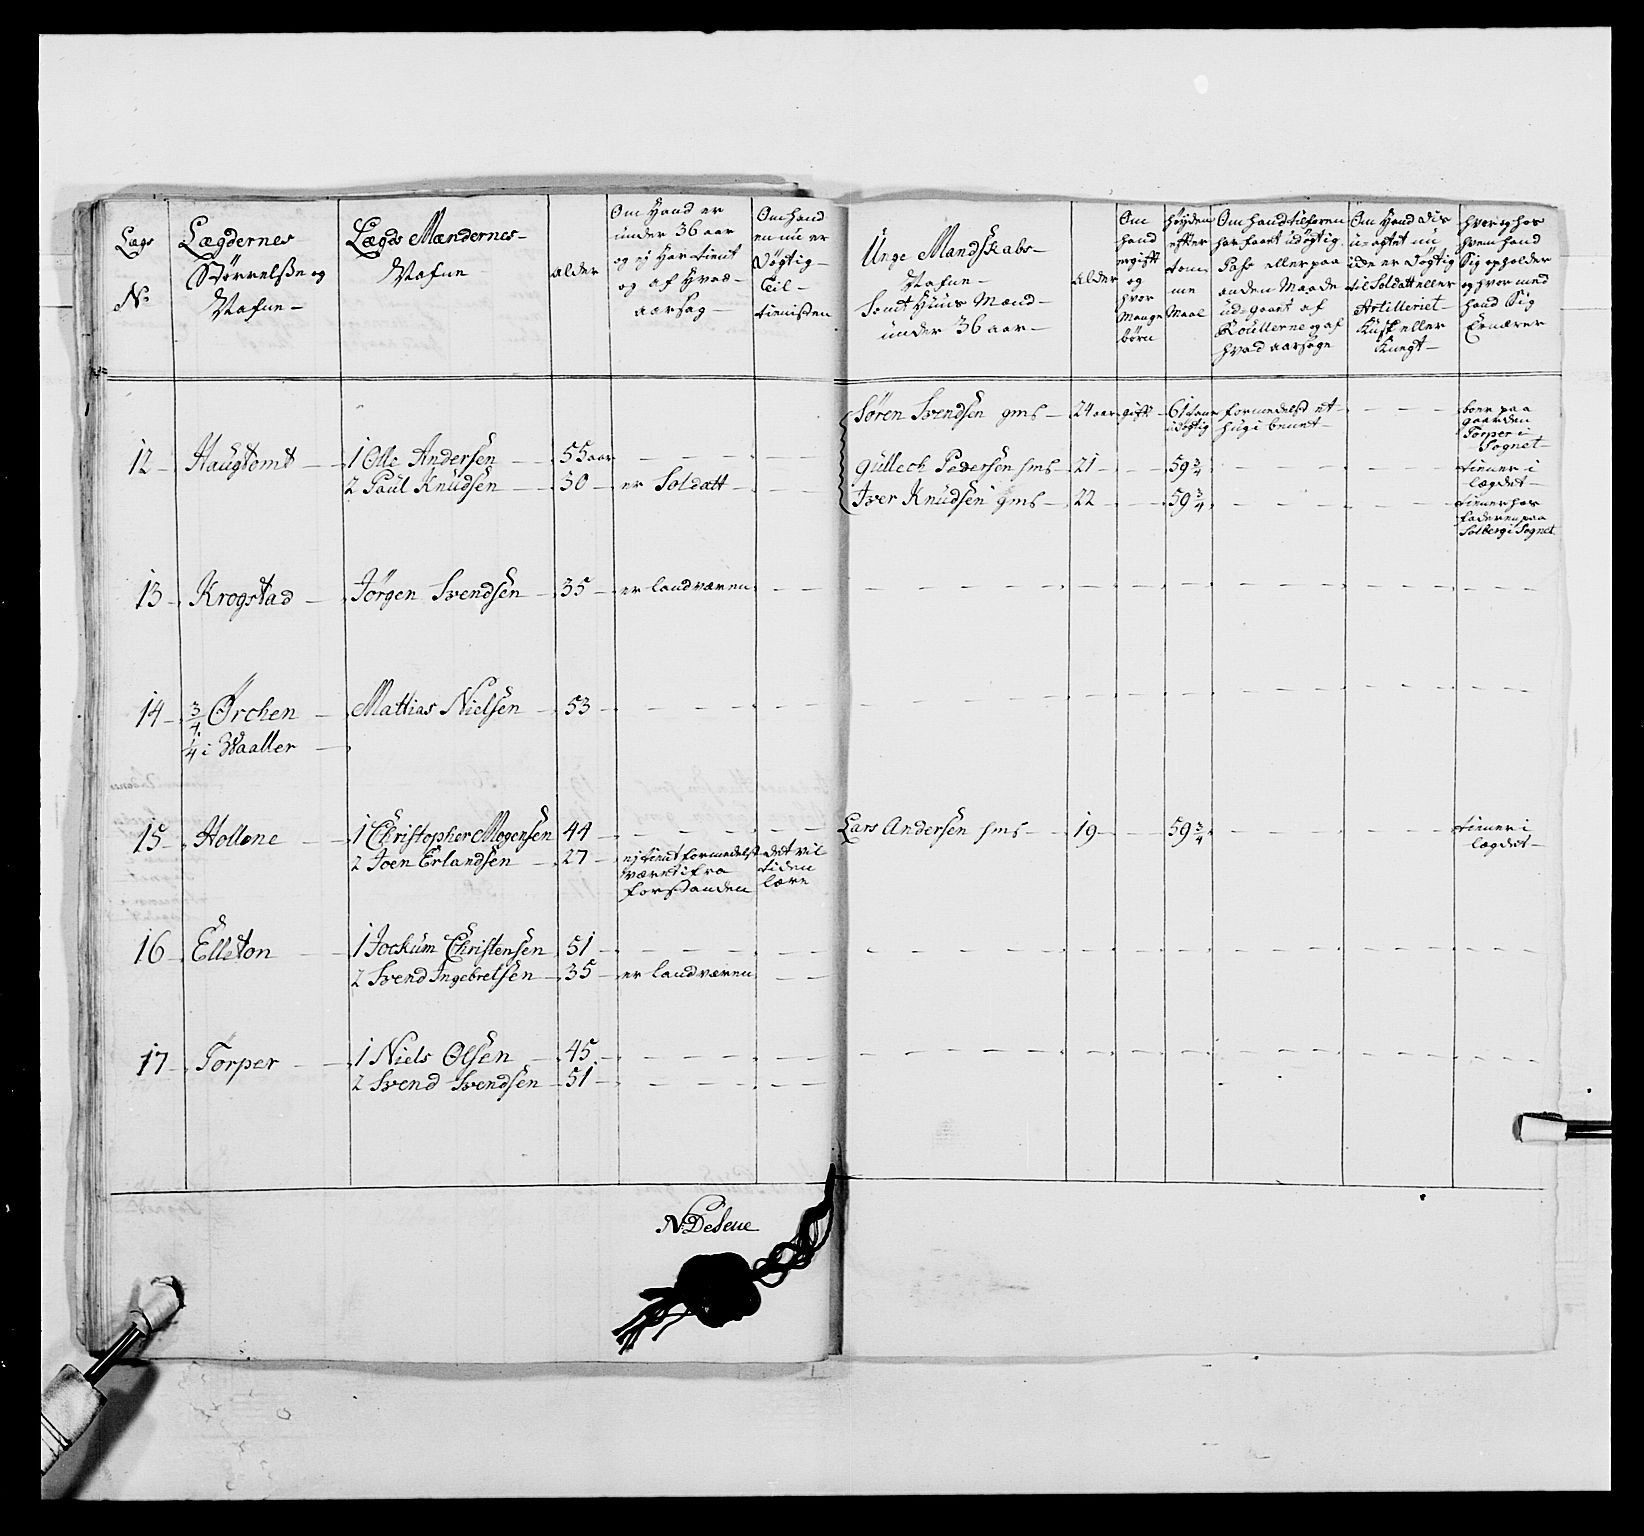 Lægs
No
Lægdernes
Størrelsße og
Nafne
Lægds Mændernes
Nafne
alder
Om Hand er
under 36 aar
og ej Har tient
og af Hvad
aarsag
Om hand
en nu er
døgtig
til
tienisten
Unge Mandskabs
Nafne
Samt Huus Mænd
under 36 aar
alder
Om
hand
er gift
og
hvor
Mange
børn
høyden
efter
tom
me
Maal
Om hand tilforen
har faaet udøgtig
Pass eller paa
anden Maade
ud gaaet af
Roullerne og af
hvad aarsage
Om Hand
nu
icke er døgtig
til Soldatt eller
Artilleriet
Kusk eller
Knegt
hvor og hos
hvem hand
Sig opholder
og hvor med
hand Sig
Ernærer
Søren Svendsen gms 24 aar gift 61 tomr udøgtig formedelst et hug i benet
boer paa
gaarden
Torper i
Sognet
12 Haugtomt 1 Olle Andersen 55 aar
Gulleck Pedersen sms 21 59 3/4
tiener i
lægdet
2 Paul Knudsen 30 er Soldatt
Iver Knudsen gms 22 59 3/4
tiener hos
faderen paa
Solberg i Sognet
13 Krogstad Jørgen Svendsen 35 er landværen
14 3/4 Ørchen Mattias Nielsen 53
1/4 i Waaller
15 Hollene 1 Christopher Mogensen 44
Lars Andersen sms 19 59 3/4
tiener i
lægdet
2 Joen Erlandsen 27
ej tient formedelst
været ifra
forstanden
det vil
tiden
lære
16 Elleton 1 Jockum Christensen 51
2 Svend Ingebretsen 35 er landværen
17 Torper 1 Niels Olsen 45
2 Svend Svendsen 51